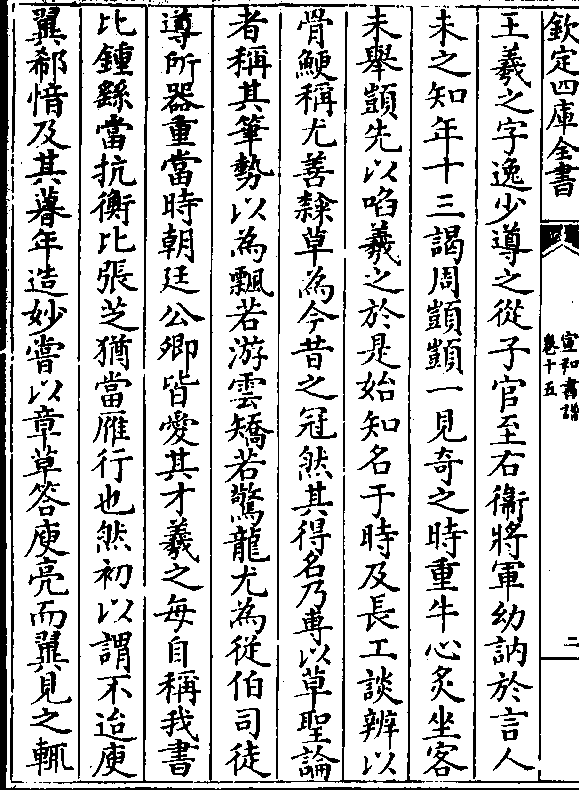 欽定四庫全書
宣和書譜
卷十五
二
王羲之字逸少導之從子官至右衞將軍幼訥於言人
未之知年十三謁周顗顗一見奇之時重牛心炙坐客
未舉顗先以啗羲之於是始知名于時及長工談辨以
骨鯁稱尤善隸草為今昔之冠然其得名乃專以草聖論
者稱其筆勢以為飄若游雲矯若驚龍尤為從伯司徒
導所器重當時朝廷公卿皆愛其才羲之每自稱我書
比鍾繇當抗衡比張芝猶當雁行也然初以謂不迨庾
翼郗愔及其暮年造妙嘗以章草答庾亮而翼見之輒